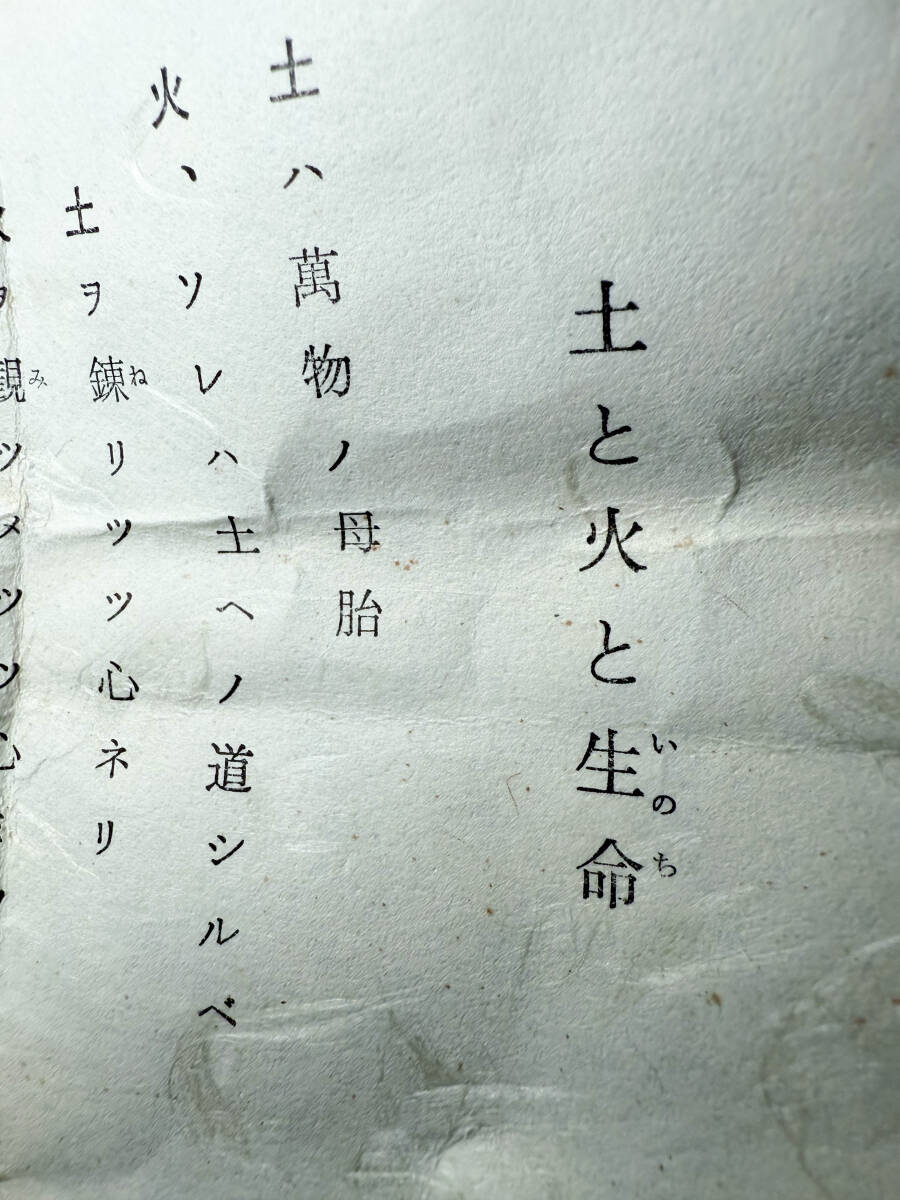 土と火と生命
いのち
土ハ萬物ノ母胎
火、ソレハ土ヘノ道シルベ
土ヲ錬リツツ心ネリ
ね
ヲ観ツメツツ心
み